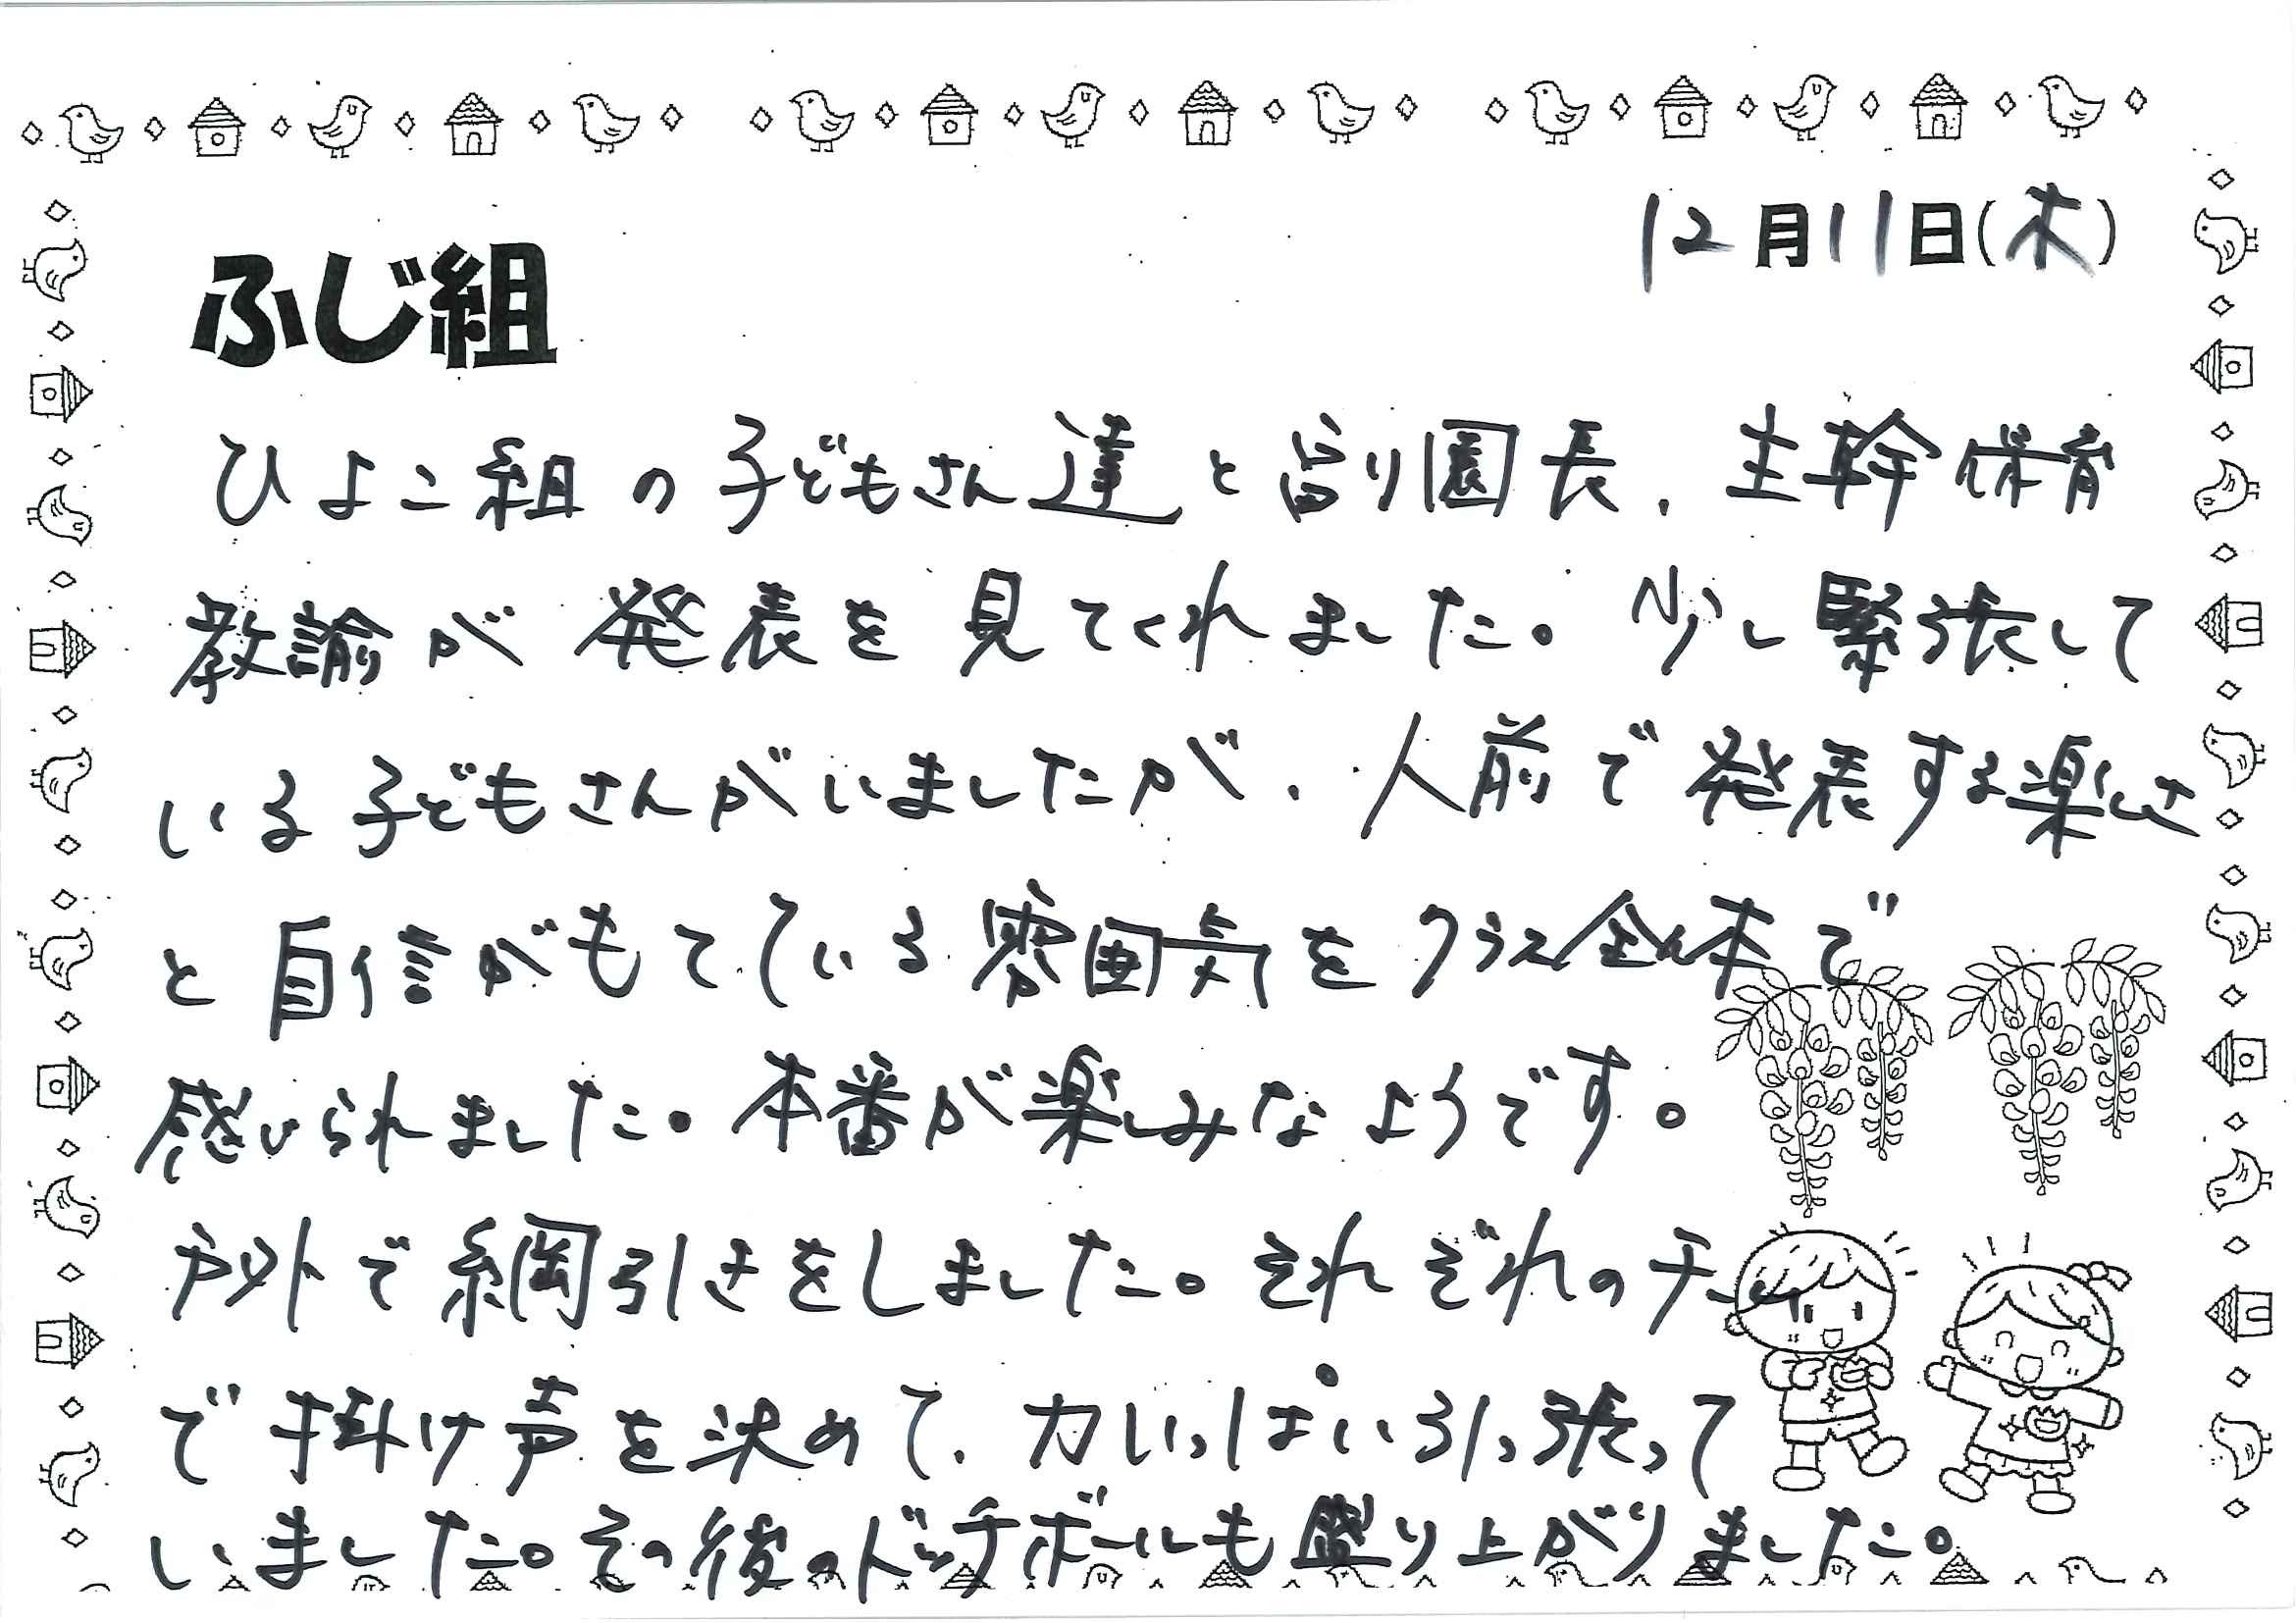 12月11日(木)
ふじ組
ひよこ組の子どもさん達と副園長、主幹保育
教諭が発表を見てくれました。少し緊張して
いる子どもさんがいましたが、人前で発表する楽しさ
と自信がもてている雰囲気をクラス全体で
感じられました。本番が楽しみなようです。
戸外で綱引きをしました。それぞれのチーム
で掛け声を決めて、力いっぱい引っ張って
いました。その後のドッチボールも盛り上がりました。